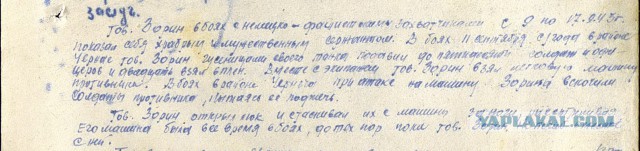 заслуг.
Тов. Зорин в боях с немецко-фашистскими захватчиками с 9 по 17.9.43г.
показал себя храбрым и мужественным сержантом. В боях 11 сентября с/года в районе
тов. Зорин гусеницами своего танка подавил до пятнадцати солдат и офи-
церов и двадцать взял в плен. Вместе с экипажем тов. Зорин взял легковую машину
противника. В бою в районе при атаке на машину Зорина вскочили
солдаты противника, пытаясь её поджечь.
Тов. Зорин открыл люк и стаскивал их с машины
Его машина была все время в боях, до тех пор пока тов.
YAPLAKAL.COM